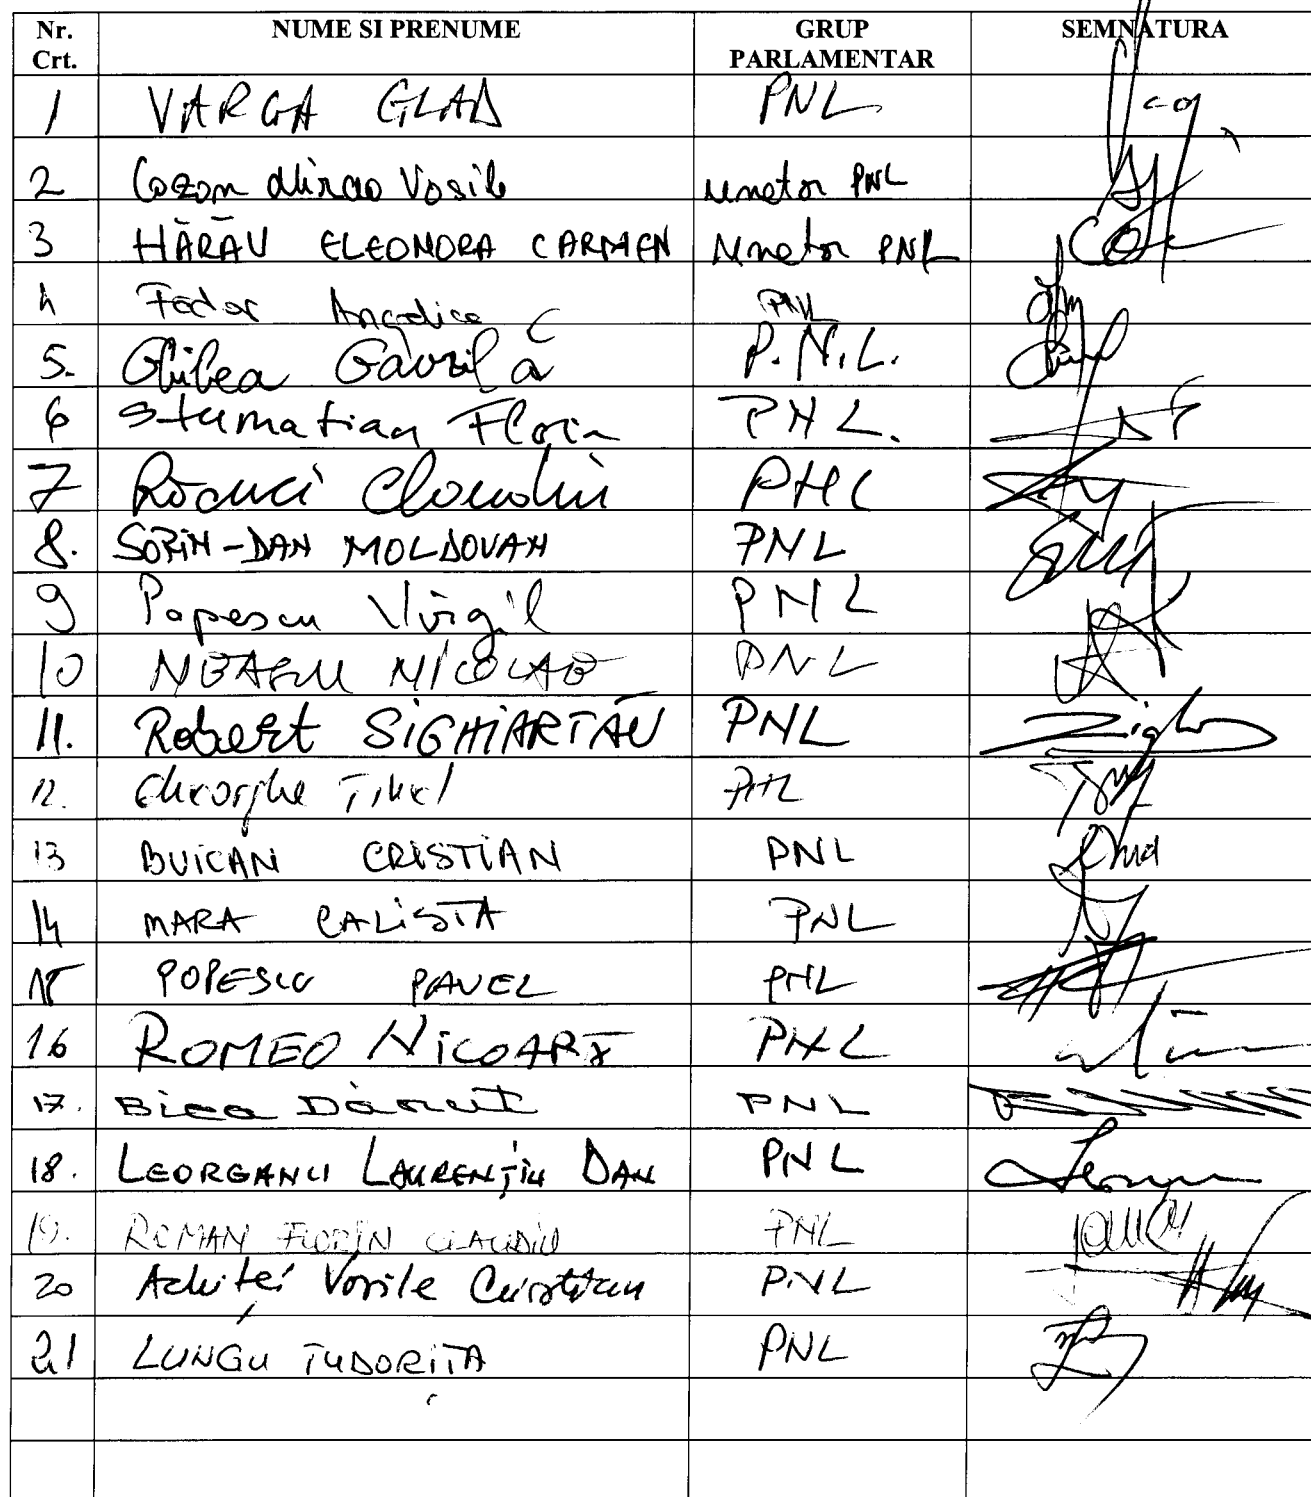 Nr. Crt. NUME SI PRENUME GRUP PARLAMENTAR SEMNATURA
1 VARGA GLAD PNL
2 Cazan Mircea Vasile senator PNL
3 HĂRĂU ELEONORA CARMEN senator PNL
4 Fedor Angelica PNL
5. Ghilea Găvrilă P.N.L.
6 Stamatian Florin PNL.
7 Răcuci Claudiu PNL
8. SORIN-DAN MOLDOVAN PNL
9 Popescu Virgil PNL
10 NEAGU NICOLAE PNL
11. Robert SIGHIARTĂU PNL
12. Gheorghe Tinel PNL
13 BUICAN CRISTIAN PNL
14 MARA CALISTA PNL
15 POPESCU PAVEL PNL
16 ROMEO NICOARĂ PNL
17. Bica Dănuț PNL
18. LEOREANU LAURENȚIU DAN PNL
19. ROMAN FLORIN CLAUDIU PNL
20 Achiței Vasile Cristian PNL
21 LUNGU TUDORIȚA PNL